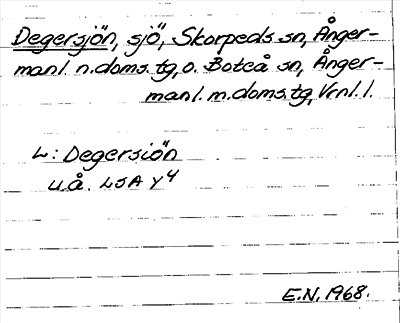 Degersjön, sjö, Skorpeds sn, Ånger-
manl. n.doms.tg, o. Boteå sn, Ånger-
manl. m.doms.tg, Vrnl. l.
L: Degersiön
u.å. LSA Y4
E.N. 1968.